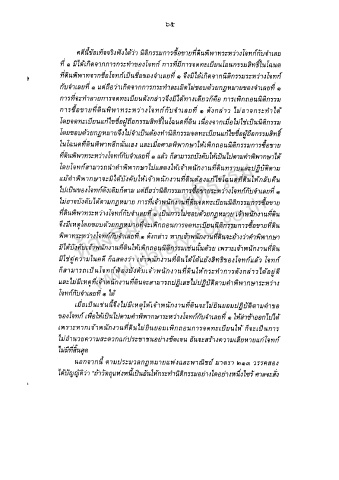 ๖๕
คดีนี้ข้อเท็จจริงฟังได้ว่า นิติกรรมการซื้อขายที่ดินพิพาทระหว่างโจทก์กับจำเลย
ที่ ๑ มิได้เกิดจากการกระทำของโจทก์ การที่มีการจดทะเบียนโอนกรรมสิทธิ์ในโฉนด
ที่ดินพิพาทจากชื่อโจทก์เป็นชื่อของจำเลยที่ ๑ จึงมิได้เกิดจากนิติกรรมระหว่างโจทก์
กับจำเลยที่ ๑ แต่ถือว่าเกิดจากการกระทำละเมิดไม่ชอบด้วยกฎหมายของจำเลยที่ ๑
การที่จะทำลายการจดทะเบียนดังกล่าวจึงมิได้ทางเดียวก็คือ การเพิกถอนนิติกรรม
การซื้อขายที่ดินพิพาทระหว่างโจทก์กับจำเลยที่ ๑ ดังกล่าว ไม่อาจกระทำได้
โดยจดทะเบียนแก้ไขชื่อผู้ถือกรรมสิทธิ์ในโฉนดที่ดิน เนื่องจากเมื่อไม่ใช่เป็นนิติกรรม
โดยชอบด้วยกฎหมายจึงไม่จำเป็นต้องทำนิติกรรมจดทะเบียนแก้ไขชื่อผู้ถือกรรมสิทธิ์
ในโฉนดที่ดินพิพาทอีกนั่นเอง และเมื่อศาลพิพากษาให้เพิกถอนนิติกรรมการซื้อขาย
ที่ดินพิพาทระหว่างโจทก์กับจำเลยที่ ๑ แล้ว ก็สามารถบังคับให้เป็นไปตามคำพิพากษาได้
โดยโจทก์สามารถนำคำพิพากษาไปแสดงให้เจ้าพนักงานที่ดินทราบและปฏิบัติตาม
แม้คำพิพากษาจะมิได้บังคับให้เจ้าพนักงานที่ดินต้องแก้ไขโฉนดที่ดินให้กลับคืน
ไปเป็นของโจทก์ดังเดิมก็ตาม แต่ถือว่านิติกรรมการซื้อขายระหว่างโจทก์กับจำเลยที่ ๑
ไม่อาจบังคับได้ตามกฎหมาย การที่เจ้าพนักงานที่ดินจดทะเบียนนิติกรรมการซื้อขาย
ที่ดินพิพาทระหว่างโจทก์กับจำเลยที่ ๑ เป็นการไม่ชอบด้วยกฎหมาย เจ้าพนักงานที่ดิน
จึงมีเหตุโดยชอบด้วยกฎหมายที่จะเพิกถอนการจดทะเบียนนิติกรรมการซื้อขายที่ดิน
พิพาทระหว่างโจทก์กับจำเลยที่ ๑ ดังกล่าว หากเจ้าพนักงานที่ดินจะอ้างว่าคำพิพากษา
มิได้บังคับเจ้าพนักงานที่ดินให้เพิกถอนนิติกรรมเช่นนั้นด้วย เพราะเจ้าพนักงานที่ดิน
มิใช่คู่ความในคดี ก็แสดงว่า เจ้าพนักงานที่ดินได้โต้แย้งสิทธิของโจทก์แล้ว โจทก์
ก็สามารถเป็นโจทก์ฟ้องบังคับเจ้าพนักงานที่ดินให้กระทำการดังกล่าวได้อยู่ดี
และไม่มีเหตุที่เจ้าพนักงานที่ดินจะสามารถปฏิเสธไม่ปฏิบัติตามคำพิพากษาระหว่าง
โจทก์กับจำเลยที่ ๑ ได้
เมื่อเป็นเช่นนี้จึงไม่มีเหตุให้เจ้าพนักงานที่ดินจะไม่ยินยอมปฏิบัติตามคำขอ
ของโจทก์ เพื่อให้เป็นไปตามคำพิพากษาระหว่างโจทก์กับจำเลยที่ ๑ ให้ล่าช้าออกไปได้
เพราะหากเจ้าพนักงานที่ดินไม่ยินยอมเพิกถอนการจดทะเบียนให้ ก็จะเป็นการ
ไม่อำนวยความสะดวกแก่ประชาชนอย่างชัดเจน อันจะสร้างความเสียหายแก่โจทก์
ไม่มีที่สิ้นสุด
นอกจากนี้ ตามประมวลกฎหมายแพ่งและพาณิชย์ มาตรา ๒๑๓ วรรคสอง
ได้บัญญัติว่า “ถ้าวัตถุแห่งหนี้เป็นอันให้กระทำนิติกรรมอย่างใดอย่างหนึ่งไซร้ ศาลจะสั่ง